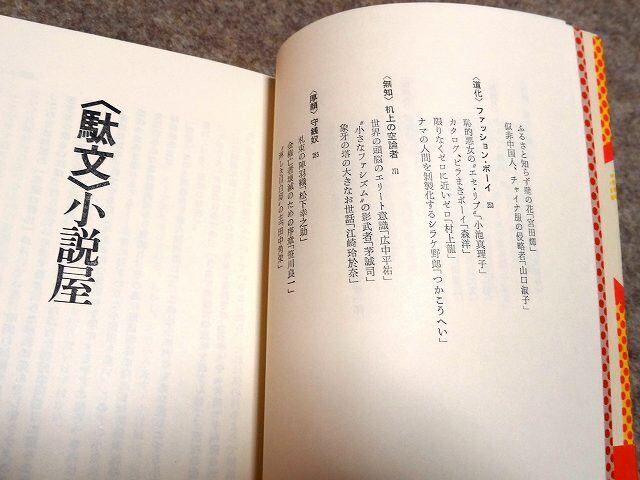 ふるさと知らず瞼の花「宮田輝」
似非中国人、チャイナ服の侵略者「山口淑子」
〈道化〉ファッション・ボーイ
恥的悪女の〝エセ・リブ〟「小池真理子」
カタログ、ビラまきボーイ「森洋」
限りなくゼロに近いゼロ「村上龍」
ナマの人間を剝製化するシラケ野郎「つかこうへい」
〈無知〉机上の空論者
世界の頭脳のエリート意識「広中平祐」
〝小さなファシズム〟の影武者「茅誠司」
象牙の塔の大きなお世話「江崎玲於奈」
〈厚顔〉守銭奴
札束の陣羽織「松下幸之助」
金権亡者壊滅のための序章「笹川良一」
「田中角栄」
〈駄文〉小説屋